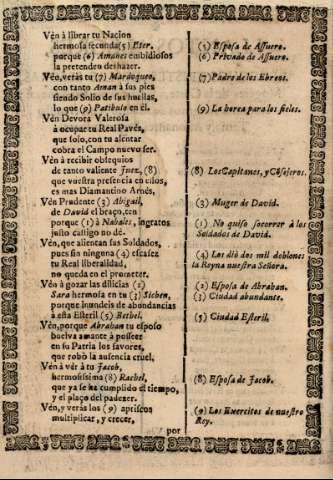 Vèn à librar tu Nacion
hermosa segunda (5) Ester,
porque (6) Amanes embidiosos
la pretenden deshazer.
Vèn, veràs tu (7) Mardoqueo,
con tanto Aman à sus pies
siendo Solio de sus huellas,
lo que (9) Patibulo en èl.
Vèn Devora Valerosa
à ocupar tu Real Pavès,
que solo, con tu alentar
cobra el Campo nuevo ser.
Vèn à recibir obsequios
de tanto valiente Juez, (8)
que vuestra presencia en ellos,
es mas Diamantino Arnès.
Vèn Prudente (3) Abigail,
de David el braço, ten
porque (1) à Nabales, ingratos
justo castigo no dè.
Vèn, que alientan sus Soldados,
pues sin ninguna (4) escasez
tu Real liberalidad,
no queda en el prometer.
Vèn à gozar las dilicias (2)
Sara hermosa en tu (3) Sichen,
porque inundeis de abundancias
à esta Esteril (5) Bethel.
Vèn, porque Abrahan tu esposo
buelva amante à posseer
en su Patria los favores,
que robò la ausencia cruel.
Vèn à vèr à tu Jacob,
hermosissima (8) Rachel,
que ya se ha cumplido el tiempo,
y el plaço del padezer.
Vèn, y veràs los (9) apriscos
multiplicar, y crecer,
por
(5) Esposa de Assuero.
(6) Privado de Assuero.
(7) Padre de los Ebreos.
(9) La horca para los fieles.
(8) Los Capitanes, y Cõsejeros.
(3) Muger de David.
(1) No quiso socorrer à los
Soldados de David.
(4) Los diò dos mil doblones
la Reyna nuestra Señora.
(2) Esposa de Abrahan.
(3) Ciudad abundante.
(5) Ciudad Esteril.
(8) Esposa de Jacob.
(9) Los Exercitos de nuestro
Rey.